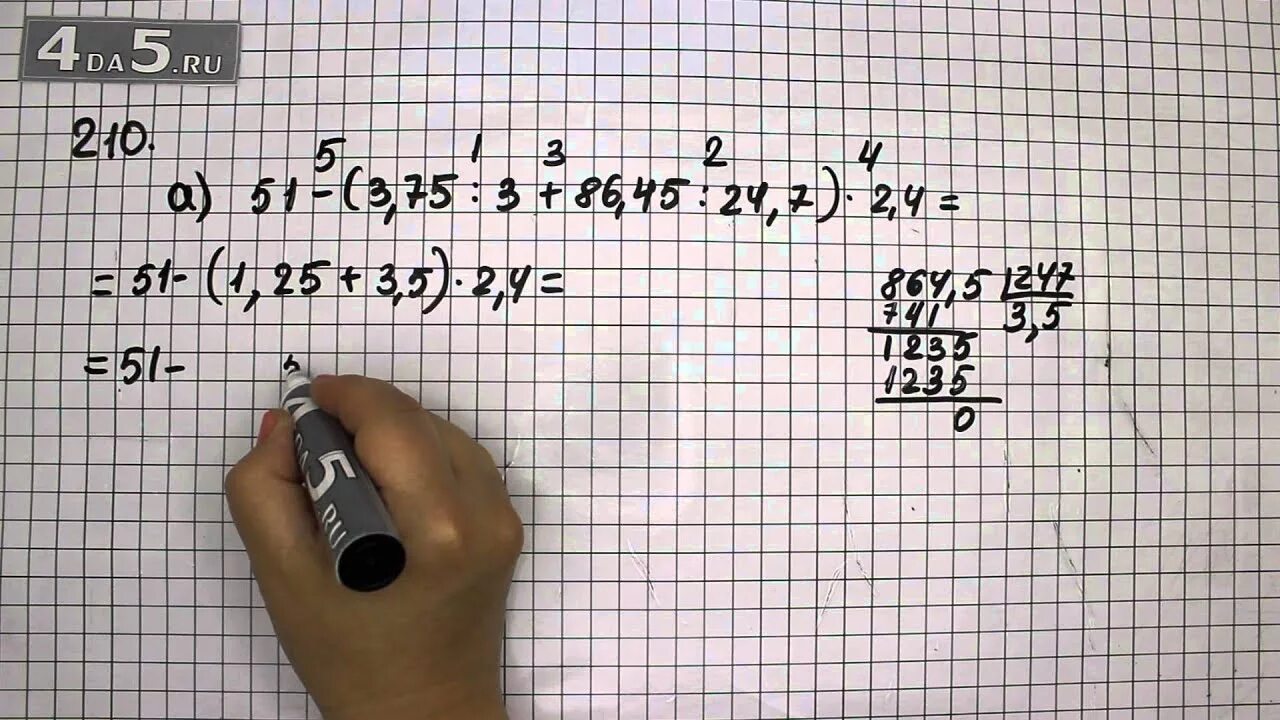 4DA5.RU
210.
5 1 3 2 4
а) 51-(3,75:3+86,45:24,7)·2,4=
=51-(1,25+3,5)·2,4=
=51-
864,5 247
741 3,5
1235
1235
0
5.RU